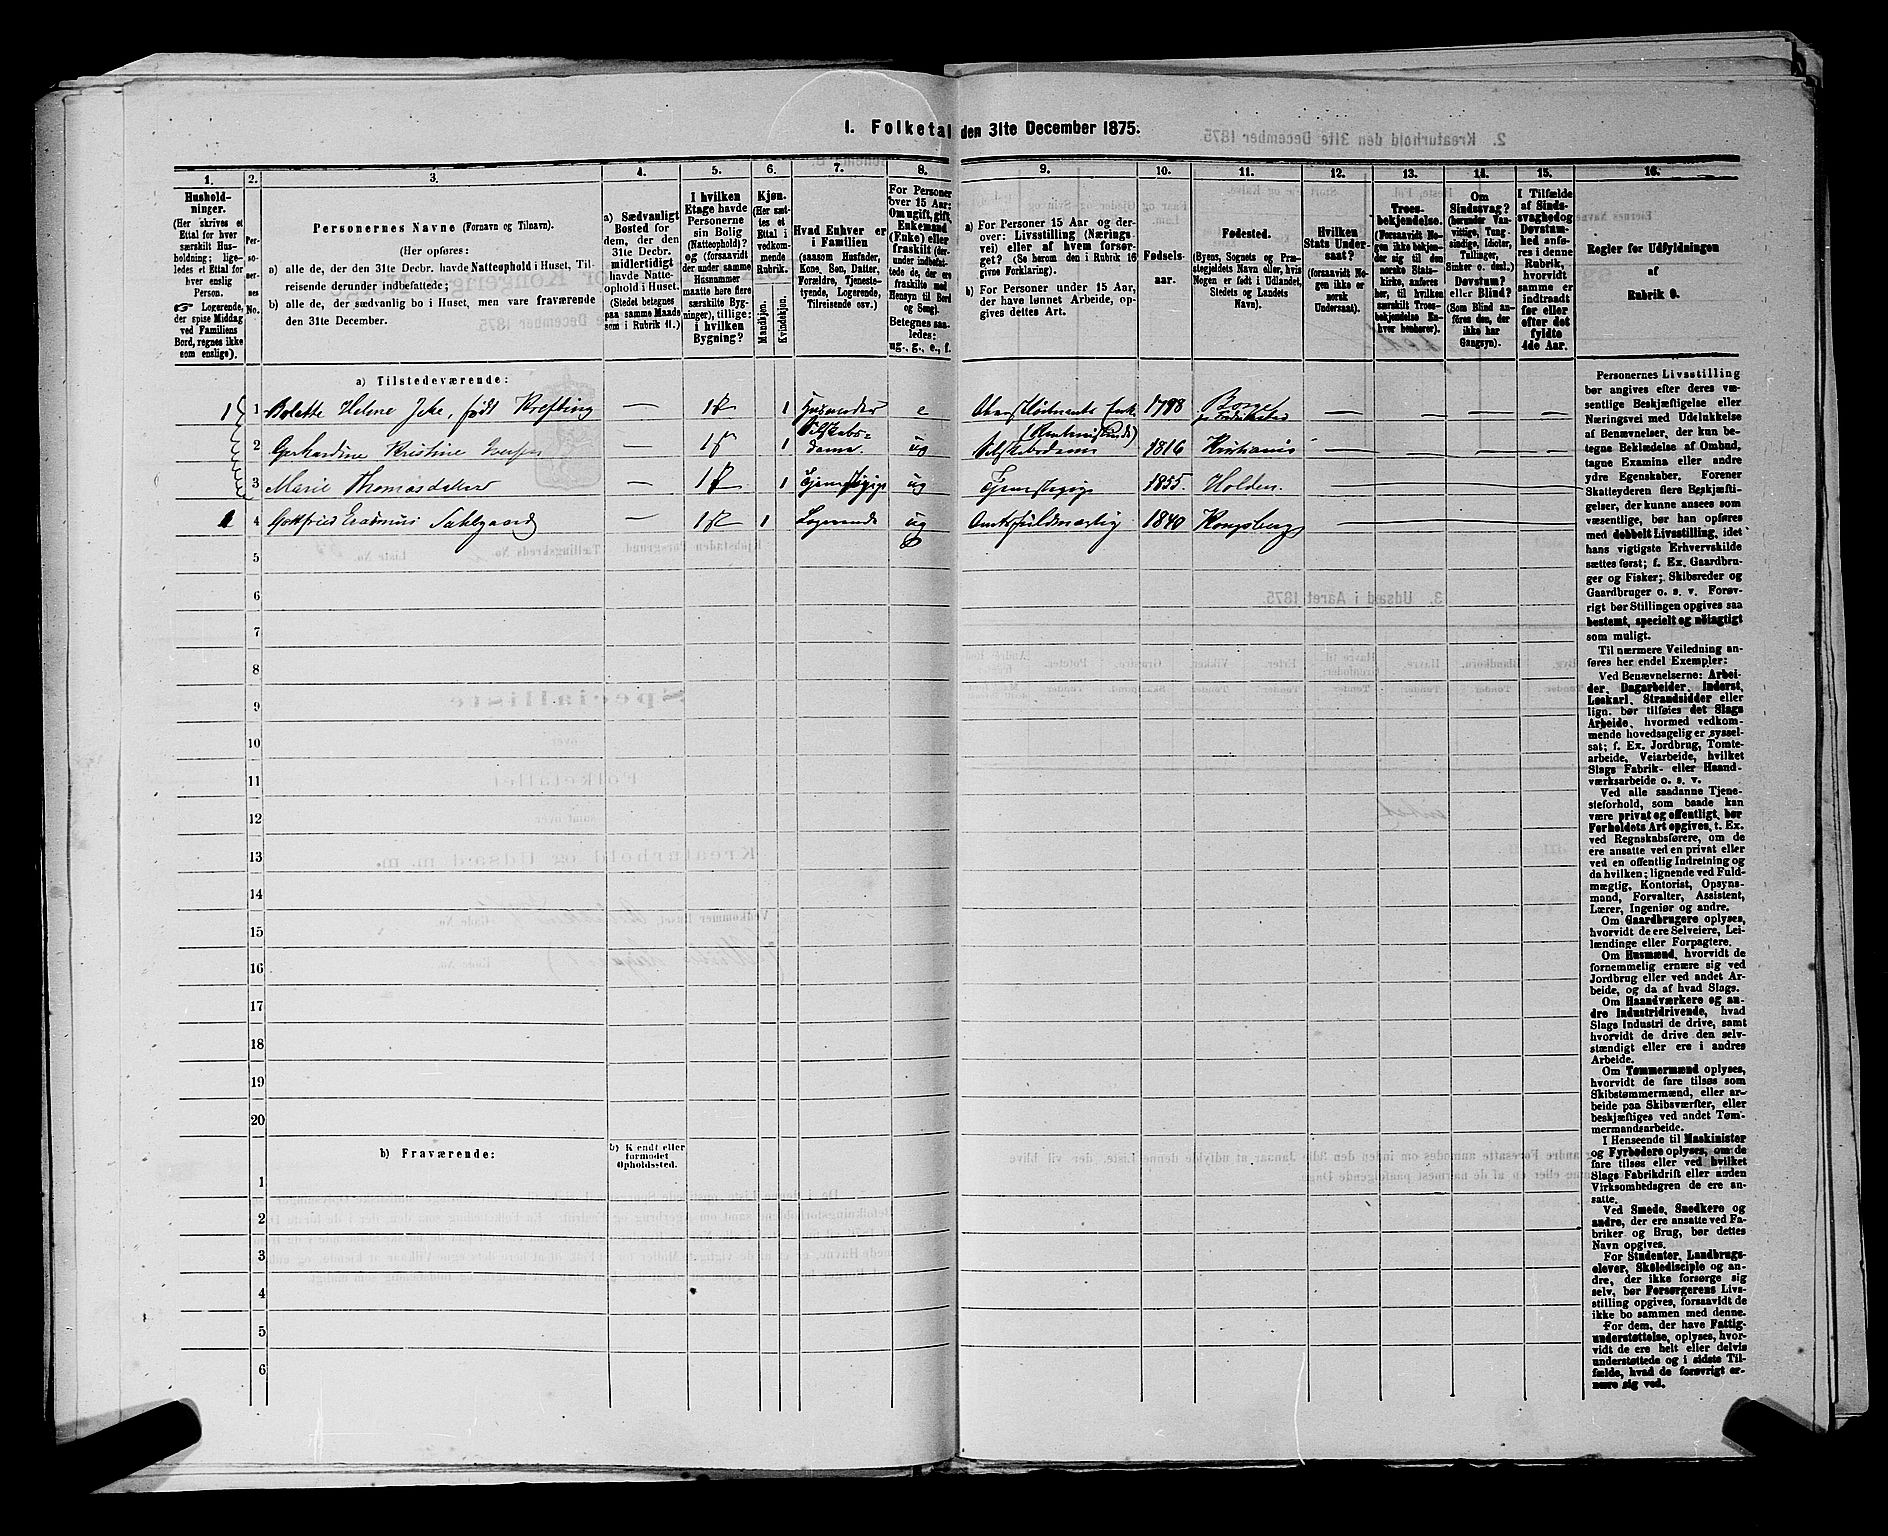 I. Folketal den 31te December 1875.
1.
Hushold-
ninger.
(Her skrives et
Ettal for hver
særskilt Hus-
holdning; lige-
ledes et Ettal for
hver enslig
Person.
☞ Logerende,
der spise Middag
ved Familiens
Bord, regnes ikke
som enslige).
2.
Per-
so-
ner-
nes
No.
3.
Personernes Navne (Fornavn og Tilnavn).
(Her opføres:
a) alle de, der den 31te Decbr. havde Natteophold i Huset, Til-
reisende derunder indbefattede;
b) alle de, der sædvanlig bo i Huset, men vare fraværende
den 31te December.
4.
a) Sædvanligt
Bosted for
dem, der den
31te Decbr.
midlertidigt
havde Natte-
ophold i Huset.
(Stedet betegnes
paa samme Maade
som i Rubrik 11.)
5.
I hvilken
Etage havde
Personerne
sin Bolig
(Natteophold)?
og (forsaavidt
der under samme
Husnummer
maatte høre flere
særskilte Byg-
ninger), tillige:
i hvilken
Bygning?
6.
Kjøn.
(Her sæt-
tes et
Ettal i
vedkom-
mende
Rubrik.
Mandkjøn.
Kvindekjøn.
7.
Hvad Enhver er
i Familien
(saasom Husfader,
Kone, Søn, Datter,
Forældre, Tjeneste-
tyende, Logerende,
Tilreisende osv.)
8.
For Personer
over 15 Aar:
Om ugift, gift,
Enkemand
(Enke) eller
fraskilt (der-
under indbefat-
tede de, der ere
fraskilte med
Hensyn til Bord
og Seng).
Betegnes saa-
ledes:
ug., g., e., f.
9.
a) For Personer 15 Aar og der-
over: Livsstilling (Nærings-
vei) eller af hvem forsør-
get? (Se herom den i Rubrik 16
givne Forklaring).
b) For Personer under 15 Aar,
der have lønnet Arbeide, op-
gives dettes Art.
10.
Fødsels-
aar.
11.
Fødested.
(Byens, Sognets og Præ-
stegjeldets Navn eller, hvis
Nogen er født i Udlandet,
Stedets og Landets
Navn).
12.
Hvilken
Stats Under-
saat?
(forsaavidt No-
gen ikke er
norsk
Undersaat).
13.
Troes-
bekjendelse.
(Forsaavidt No-
gen ikke bekjen-
der sig til den
norske Stats-
kirke, anføres
her, til hvilken
særskilt Troes-
bekjendelse En-
hver henhører).
14.
Om
Sindssvag?
(herunder Van-
vittige, Tung-
sindige, Idioter,
Tullinger,
Sinker o. desl.)
Døvstum?
eller Blind?
(Som Blind an-
føres den, der
ikke har
Gangsyn).
15.
I Tilfælde
af Sinds-
svaghed og
Døvstum-
hed anfø-
res i denne
Rubrik,
hvorvidt
samme er
indtraadt
før eller
efter det
fyldte
4de Aar.
16.
Regler for Udfyldningen
af
Rubrik 9.
a) Tilstedeværende:
1 1 Bolette Helene Jche, født Krefting — 1 1 Husmoder e Oberstlødtnants Enke 1788 Borge
Selskabs= Fredrikstad
2 Gerhardine Kristine — 1 1 dame. ug Selskabsdame 1816 Kristiania — — — —
3 Marie Thomasdatter — 1 1 Tjenestepige ug Tjenestepige 1855. Holden. — — — —
1 4 Gotfried Erasmus Sahlgaard — 1 1 Logerende ug Amtsfuldmægtig 1840 Kongsberg — — — —
5
6
7
8
9
10
11
12
13
14
15
16
17
18
19
20
b) Fraværende:
b) Kjendt eller
formodet
Opholdssted.
1
2
3
4
5
6
Personernes Livsstilling
bør angives efter deres væ-
sentlige Beskjæftigelse eller
Næringsvei med Udelukkelse
af Benævnelser, der kun be-
tegne Beklædelse af Ombud,
tagne Examina eller andre
ydre Egenskaber. Forener
Skatteyderen flere Beskjæfti-
gelser, der kunne ansees som
væsentlige, bør han opføres
med dobbelt Livsstilling, idet
hans vigtigste Erhvervskilde
sættes først; f. Ex. Gaardbru-
ger og Fisker; Skibsreder og
Gaardbruger o. s. v. Forøv-
rigt bør Stillingen opgives saa
bestemt, specielt og nøiagtigt
som muligt.
Til nærmere Veiledning an-
føres her endel Exempler:
Ved Benævnelserne: Arbei-
der, Dagarbeider, Inderst,
Løskarl, Strandsidder eller
lign. bør tilføies det Slags
Arbeide, hvormed vedkom-
mende hovedsagelig er syssel-
sat; f. Ex. Jordbrug, Tomte-
arbeide, Veiarbeide, hvilket
Slags Fabrik- eller Haand-
værksarbeide o. s. v.
Ved alle saadanne Tjene-
steforhold, som baade kan
være privat og offentligt, bør
Forholdets Art opgives, t. Ex.
ved Regnskabsførere, om de
ere ansatte ved en privat eller
ved en offentlig Indretning og
da hvilken; lignende ved Fuld-
mægtig, Kontorist, Opsyns-
mand, Forvalter, Assistent,
Lærer, Ingeniør og andre.
Om Gaardbrugere oplyses,
hvorvidt de ere Selveiere, Lei-
lændinge eller Forpagtere.
Om Husmænd, hvorvidt de
fornemmelig ernære sig ved
Jordbrug eller ved andet Ar-
beide, og da af hvad Slags.
Om Haandværkere og an-
dre Industridrivende, hvad
Slags Industri de drive, samt
hvorvidt de drive den selv-
stændigt eller ere i andres
Arbeide.
Om Tømmermænd oplyses,
hvorvidt de fare tilsøs som
Skibstømmermænd, eller ar-
beide paa Skibsværfter, eller
beskjæftiges ved andet Tøm-
mermandsarbeide.
I Henseende til Maskinister
og Fyrbødere oplyses, om de
fare tilsøs eller ved hvilket
Slags Fabrikdrift eller anden
Virksomhedsgren de ere an-
satte.
Ved Smede, Snedkere og
andre, der ere ansatte ved Fa-
briker og Brug, bør dettes
Navn opgives.
For Studenter, Landbrugs-
elever, Skoledisciple og an-
dre, der ikke forsørge sig
selv, bør Forsørgerens Livs-
stilling opgives, forsaavidt de
ikke bo sammen med denne.
For dem, der have Fattig-
understøttelse, oplyses, hvor-
vidt de ere helt eller delvis
understøttede og i sidste Til-
fælde, hvad de forøvrigt er-
nære sig ved.